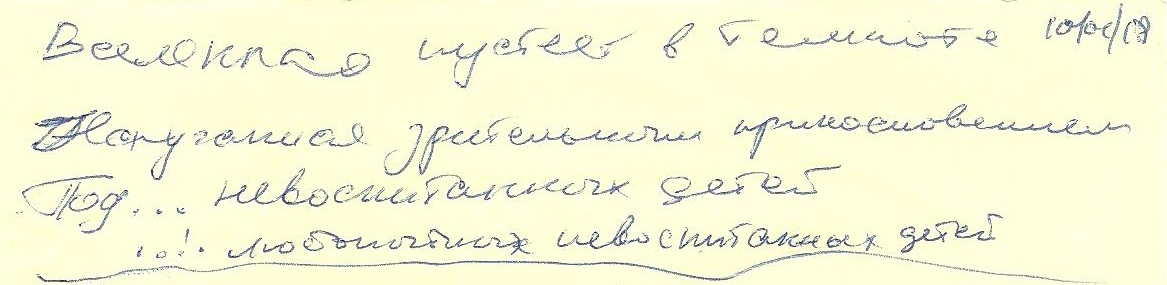 Вселенная пустеет в темноте 10/01/18
Напуганная зрительным прикосновением
Под... невоспитанных детей
...!. любопытных невоспитанных детей